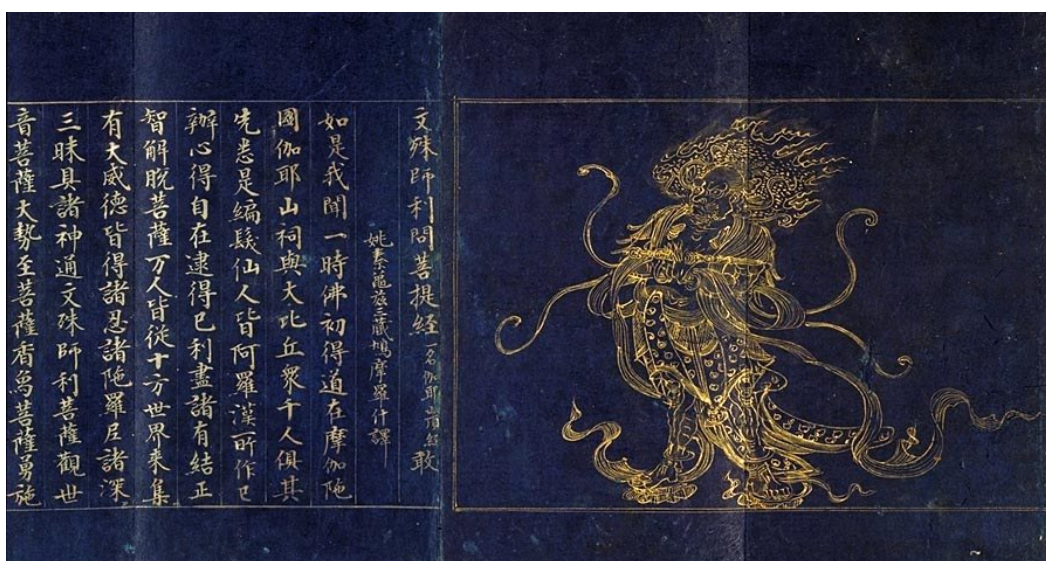 文殊師利問菩提経一名伽耶山頂経 敢
姚秦龜茲三藏鳩摩羅什譯
如是我聞一時佛初得道在摩伽陁
國伽耶山祠與大比丘衆千人俱其
先悉是編髮仙人皆阿羅漢所作已
辦心得自在逮得已利盡諸有結正
智解脫菩薩万人皆從十方世界来集
有大威德皆得諸忍諸陁羅尼諸深
三昧具諸神通文殊師利菩薩觀世
音菩薩大勢至菩薩香烏菩薩勇施